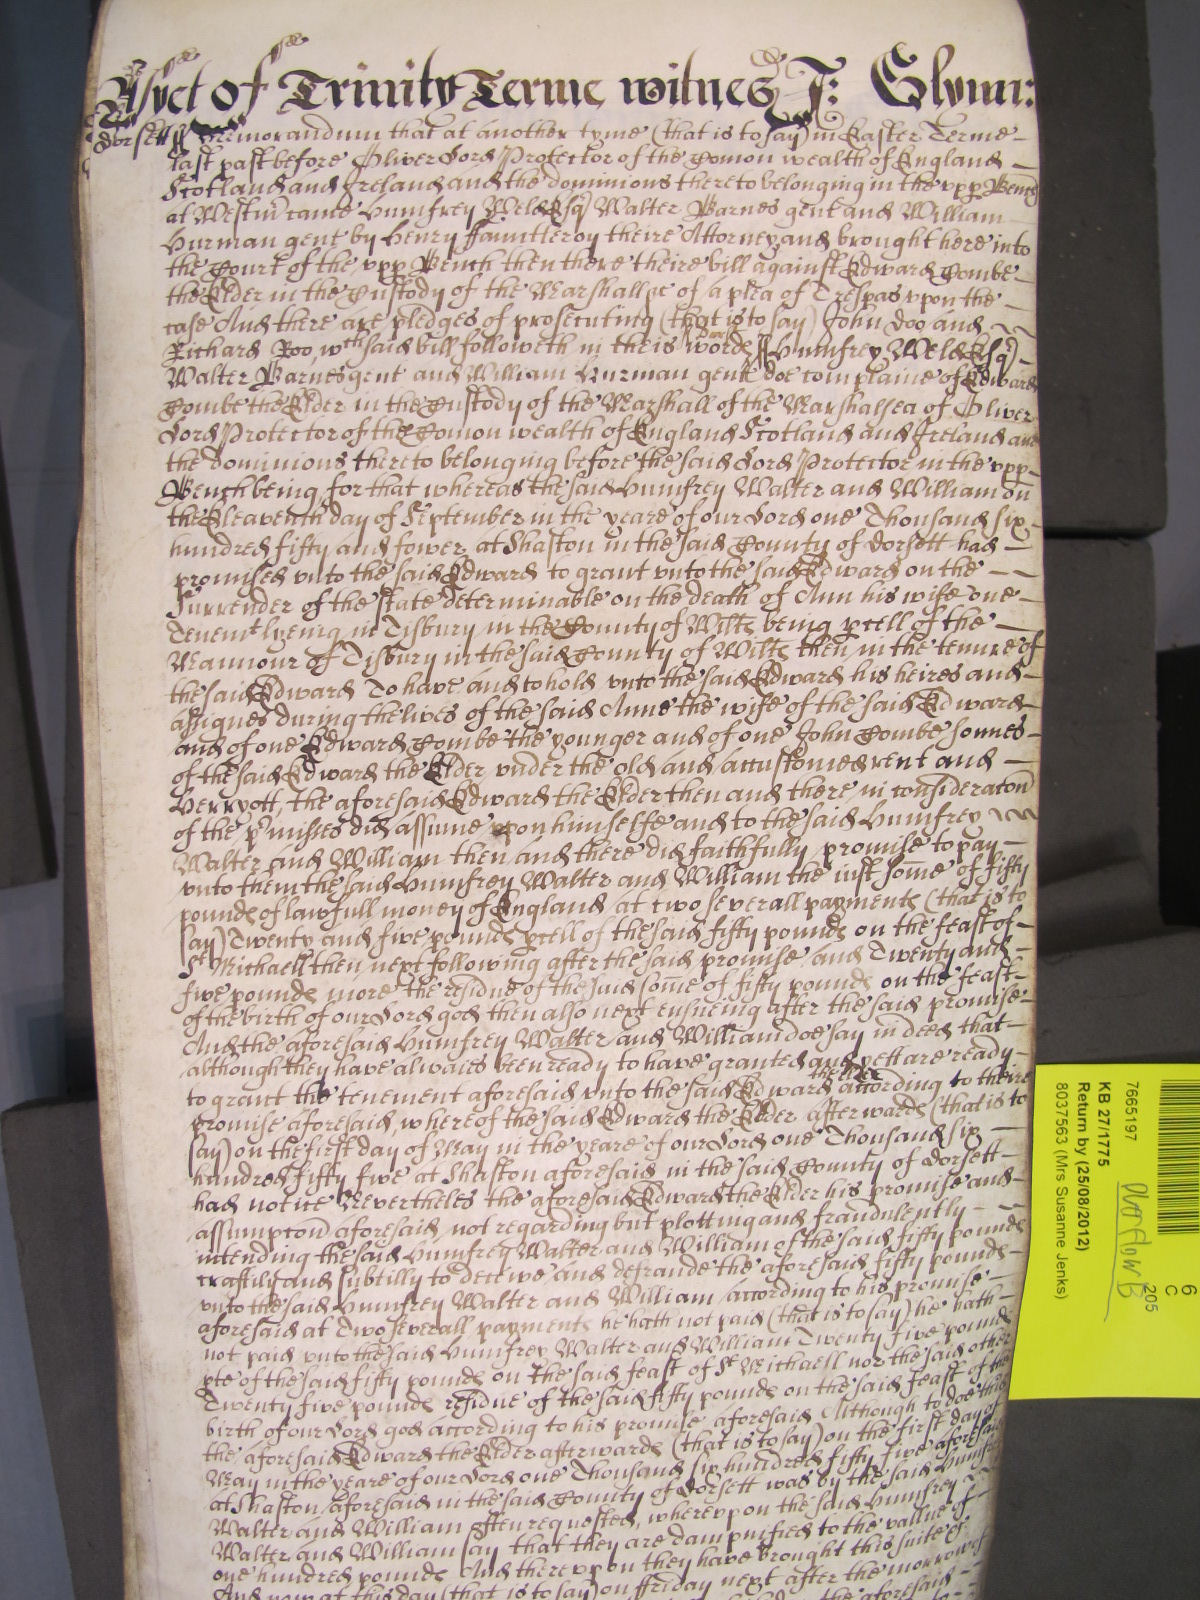 Aspect of Trinity Terme witnes J: Glynn:
Dorsett ss Memorandum that at another tyme (that is to say) in Easter Terme
last past before Oliver Lord Protector of the Comon wealth of England
Scotland and Ireland and the dominions thereto belonging in the vpp Bench
at Westmr came Humfrey Weld Esqr Walter Barnes gent and William
Hurman gent by Henry ffauntleroy theire Attorney and brought here into
the Court of the vpp Bench then there theire bill against Edward Combe
the Elder in the Custody of the Marshall &c of a plea of Trespas vpon the
case And there are pledges of prosecuting (that is to say) John Doo and
Richard Roo, wch said bill followeth in theis words ss Humfrey Weld Esqr
Walter Barnes gent and William Hurman gent doe complaine of Edward
Combe the Elder in the Custody of the Marshall of the Marshalsea of Oliver
Lord Protector of the Comon wealth of England Scotland and Ireland and
the dominions thereto belonging before the said Lord Protector in the vpp
Bench being, for that whereas the said Humfrey Walter and William on
the Eleaventh day of September in the yeare of our Lord one Thousand six
hundred fifty and fower at Shaston in the said County of Dorsett had
promised vnto the said Edward to grant vnto the said Edward on the
Surrender of the state determinable on the death of Ann his wife one
Tenemt lyeing in Tisbury in the County of Wilts being pcell of the
Mannour of Tisbury in the said County of Wilts then in the tenure of
the said Edward To have and to hold vnto the said Edward his heires and
assignes during the lives of the said Anne the wife of the said Edward
and of one Edward Combe the younger and of one John Combe sonnes
of the said Edward the Elder vnder the old and accustomed rent and
Herryott, the aforesaid Edward the Elder then and there in consideracon
of the pmisses did assume vpon himselfe and to the said Humfrey
Walter and William then and there did faithfully promise to pay
vnto them the said Humfrey Walter and William the iust some of fifty
pounds of lawfull money of England at two severall payments (that is to
say) Twenty and five pounds pcell of the said fifty pounds on the feast of
St Michaell then next following after the said promise and Twenty and
five pounds more the residue of the said some of fifty pounds on the feast
of the birth of our Lord god then also next ensueing after the said promise
And the aforesaid Humfrey Walter and William doe say in deed that
although they have alwaies been ready to have granted and yett are ready
to grant the tenement aforesaid vnto the said Edward the elder according to theire
promise aforesaid, whereof the said Edward the Elder afterwards (that is to
say) on the first day of May in the yeare of our Lord one Thousand six
hundred fifty five at Shaston aforesaid in the said County of Dorsett
had notice Nevertheles the aforesaid Edward the Elder his promise and
assumpcon aforesaid not regarding but plotting and fraudulently
intending the said Humfrey Walter and William of the said fifty pounds
craftily and subtilly to deceive and defraude the aforesaid fifty pounds
vnto the said Humfrey Walter and William according to his promise
aforesaid at Two severall payments he hath not paid (that is to say) he hath
not paid vnto the said Humfrey Walter and William Twenty five pounds
pte of the said fifty pounds on the said feast of St Michaell nor the said other
Twenty five pounds residue of the said fifty pounds on the said feast of the
birth of our Lord god according to his promise aforesaid Although to doe this
the aforesaid Edward the Elder afterwards (that is to say) on the first day of
May in the yeare of our Lord one Thousand six hundred fifty five aforesaid
at Shaston aforesaid in the said County of Dorsett was by the said Humfrey
Walter and William often requested, wherevpon the said Humfrey
Walter and William say that they are dampnified to the vallue of
one hundred pounds And therevpon they have brought this suite &c
And now at this day (that is to say) on ffriday next after the morrow of
the aforesaid
7665197
KB 27/1775
Return by (25/08/2012)
8037563 (Mrs Susanne Jenks)
Overflow B
205
C
6